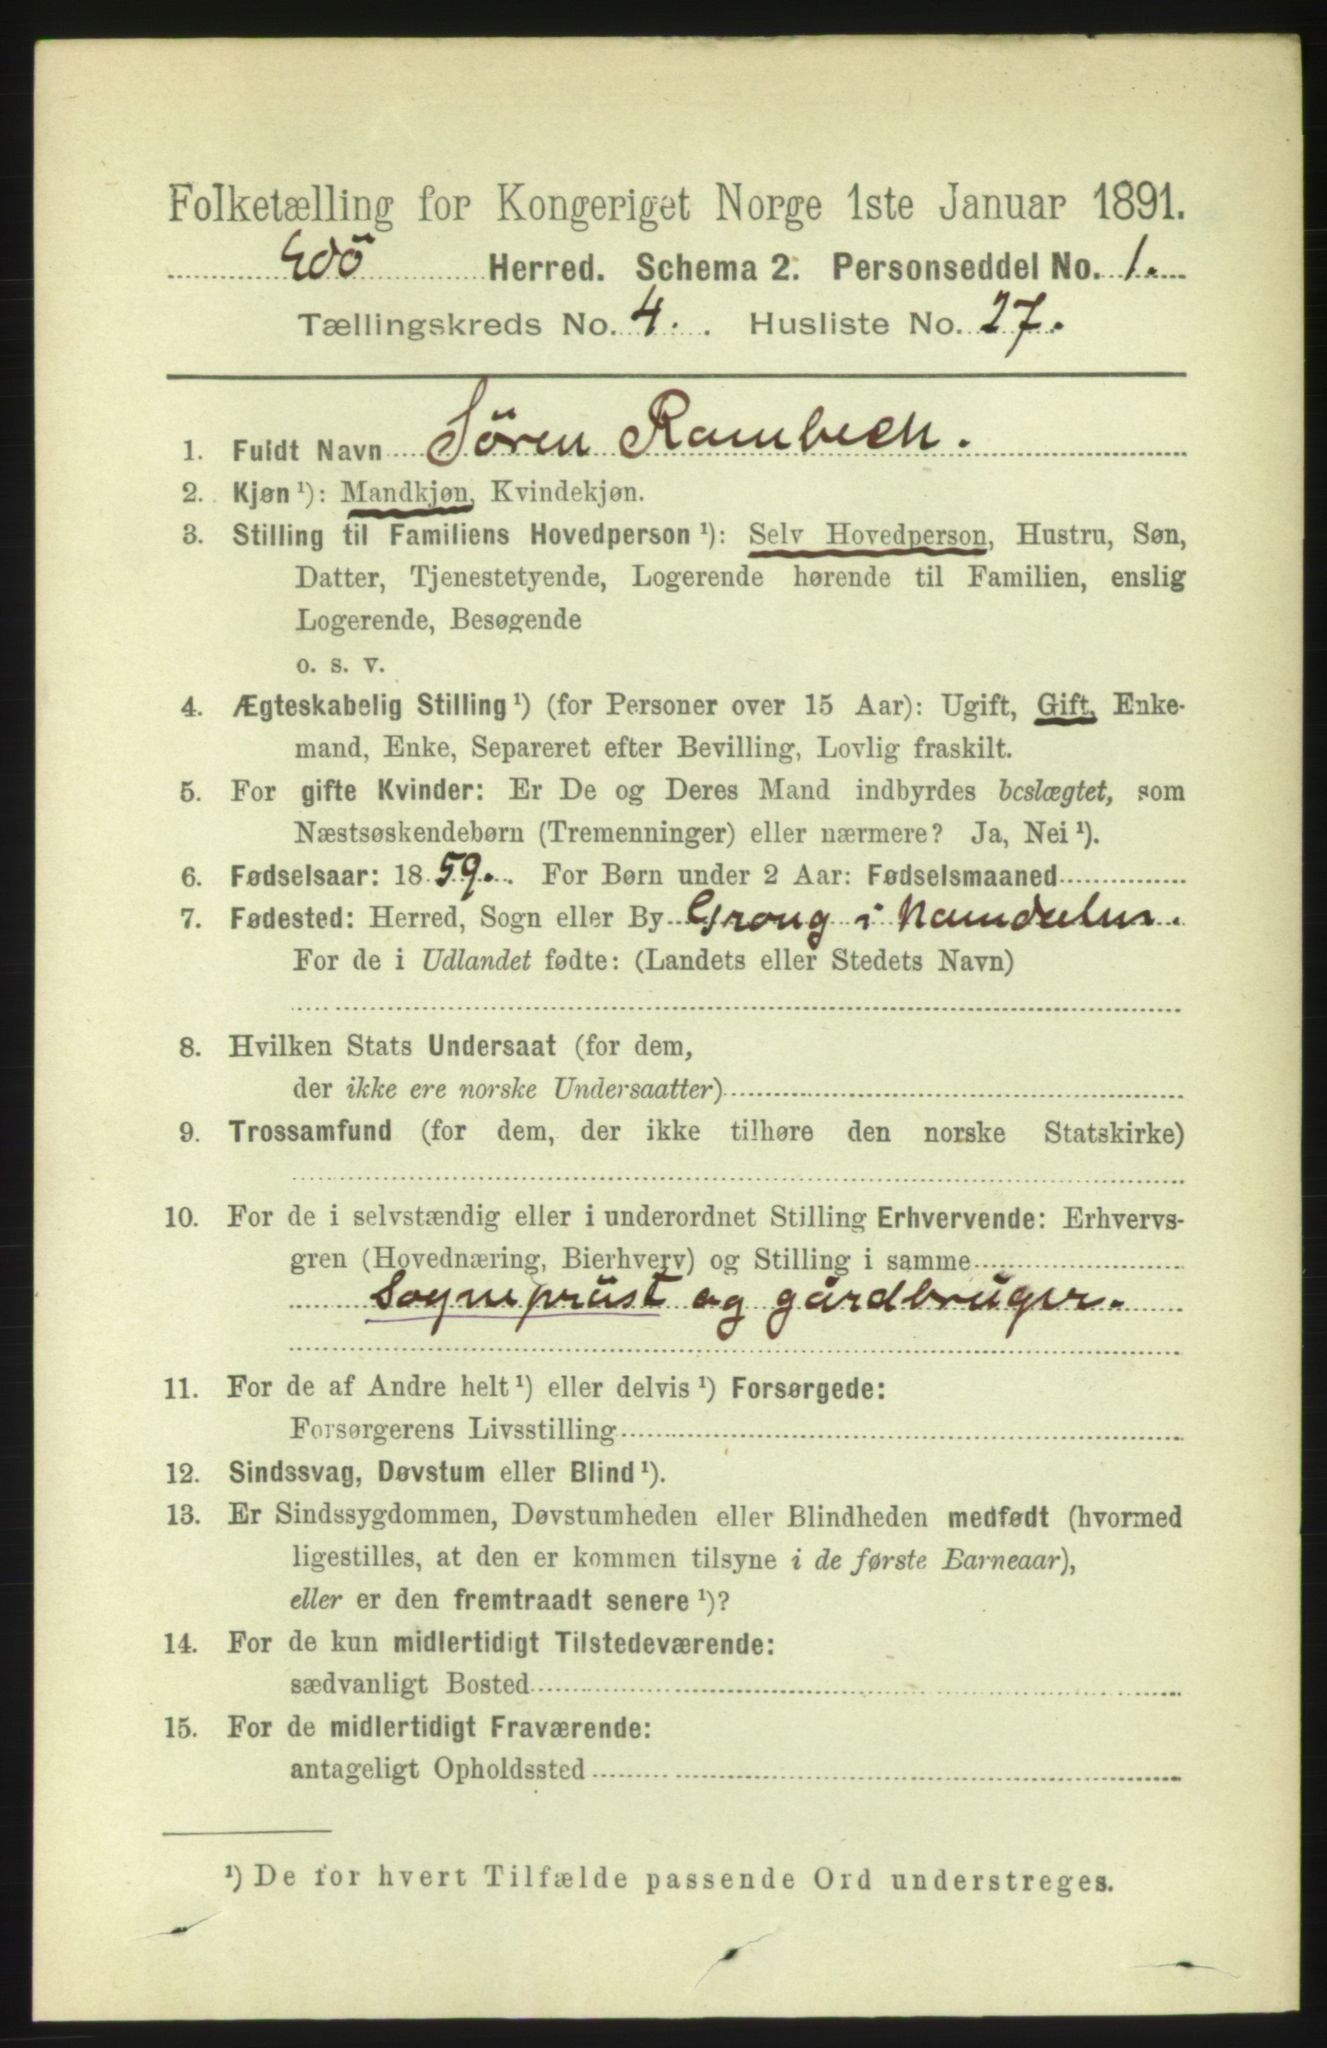 Folketælling for Kongeriget Norge 1ste Januar 1891.
Edö Herred. Schema 2. Personseddel No. 1.
Tællingskreds No. 4. Husliste No. 27.
1. Fuldt Navn Sören Rambech.
2. Kjøn ¹): Mandkjøn, Kvindekjøn.
3. Stilling til Familiens Hovedperson ¹): Selv Hovedperson, Hustru, Søn,
Datter, Tjenestetyende, Logerende hørende til Familien, enslig
Logerende, Besøgende
o. s. v.
4. Ægteskabelig Stilling ¹) (for Personer over 15 Aar): Ugift, Gift, Enke-
mand, Enke, Separeret efter Bevilling, Lovlig fraskilt.
5. For gifte Kvinder: Er De og Deres Mand indbyrdes beslægtet, som
Næstsøskendebørn (Tremenninger) eller nærmere? Ja, Nei ¹).
6. Fødselsaar: 1859. For Børn under 2 Aar: Fødselsmaaned
7. Fødested: Herred, Sogn eller By Grong i Namdalen.
For de i Udlandet fødte: (Landets eller Stedets Navn)
8. Hvilken Stats Undersaat (for dem,
der ikke ere norske Undersaatter)
9. Trossamfund (for dem, der ikke tilhøre den norske Statskirke)
10. For de i selvstændig eller i underordnet Stilling Erhvervende: Erhvervs-
gren (Hovednæring, Bierhverv) og Stilling i samme
Sogneprest og gårdbruger.
11. For de af Andre helt ¹) eller delvis ¹) Forsørgede:
Forsørgerens Livsstilling
12. Sindssvag, Døvstum eller Blind ¹).
13. Er Sindssygdommen, Døvstumheden eller Blindheden medfødt (hvormed
ligestilles, at den er kommen tilsyne i de første Barneaar),
eller er den fremtraadt senere ¹)?
14. For de kun midlertidigt Tilstedeværende:
sædvanligt Bosted
15. For de midlertidigt Fraværende:
antageligt Opholdssted
¹) De for hvert Tilfælde passende Ord understreges.